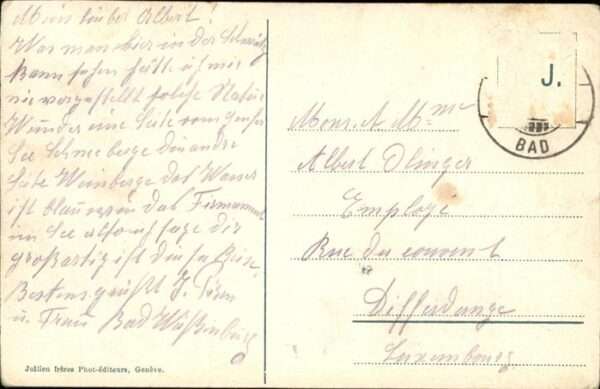 Mein lieber Albert!
Was man hier in der Schweiz
kann sehen hätte ich mir
nie vorgestellt solche Natur
Wunder eine Seite vom genfer
See Schneeberge die andre
Seite Weinberge das Wasser
ist blau das Firmament
im See also ich sage dir
großartig ist die
Bestens grüßt J.
u. Frau Bad
Jullien frères Phot-éditeurs, Genève.
J.
BAD
Mons. & Mme
Albert Olinger
Employé
Rue du couvent
Differdange
Luxembourg